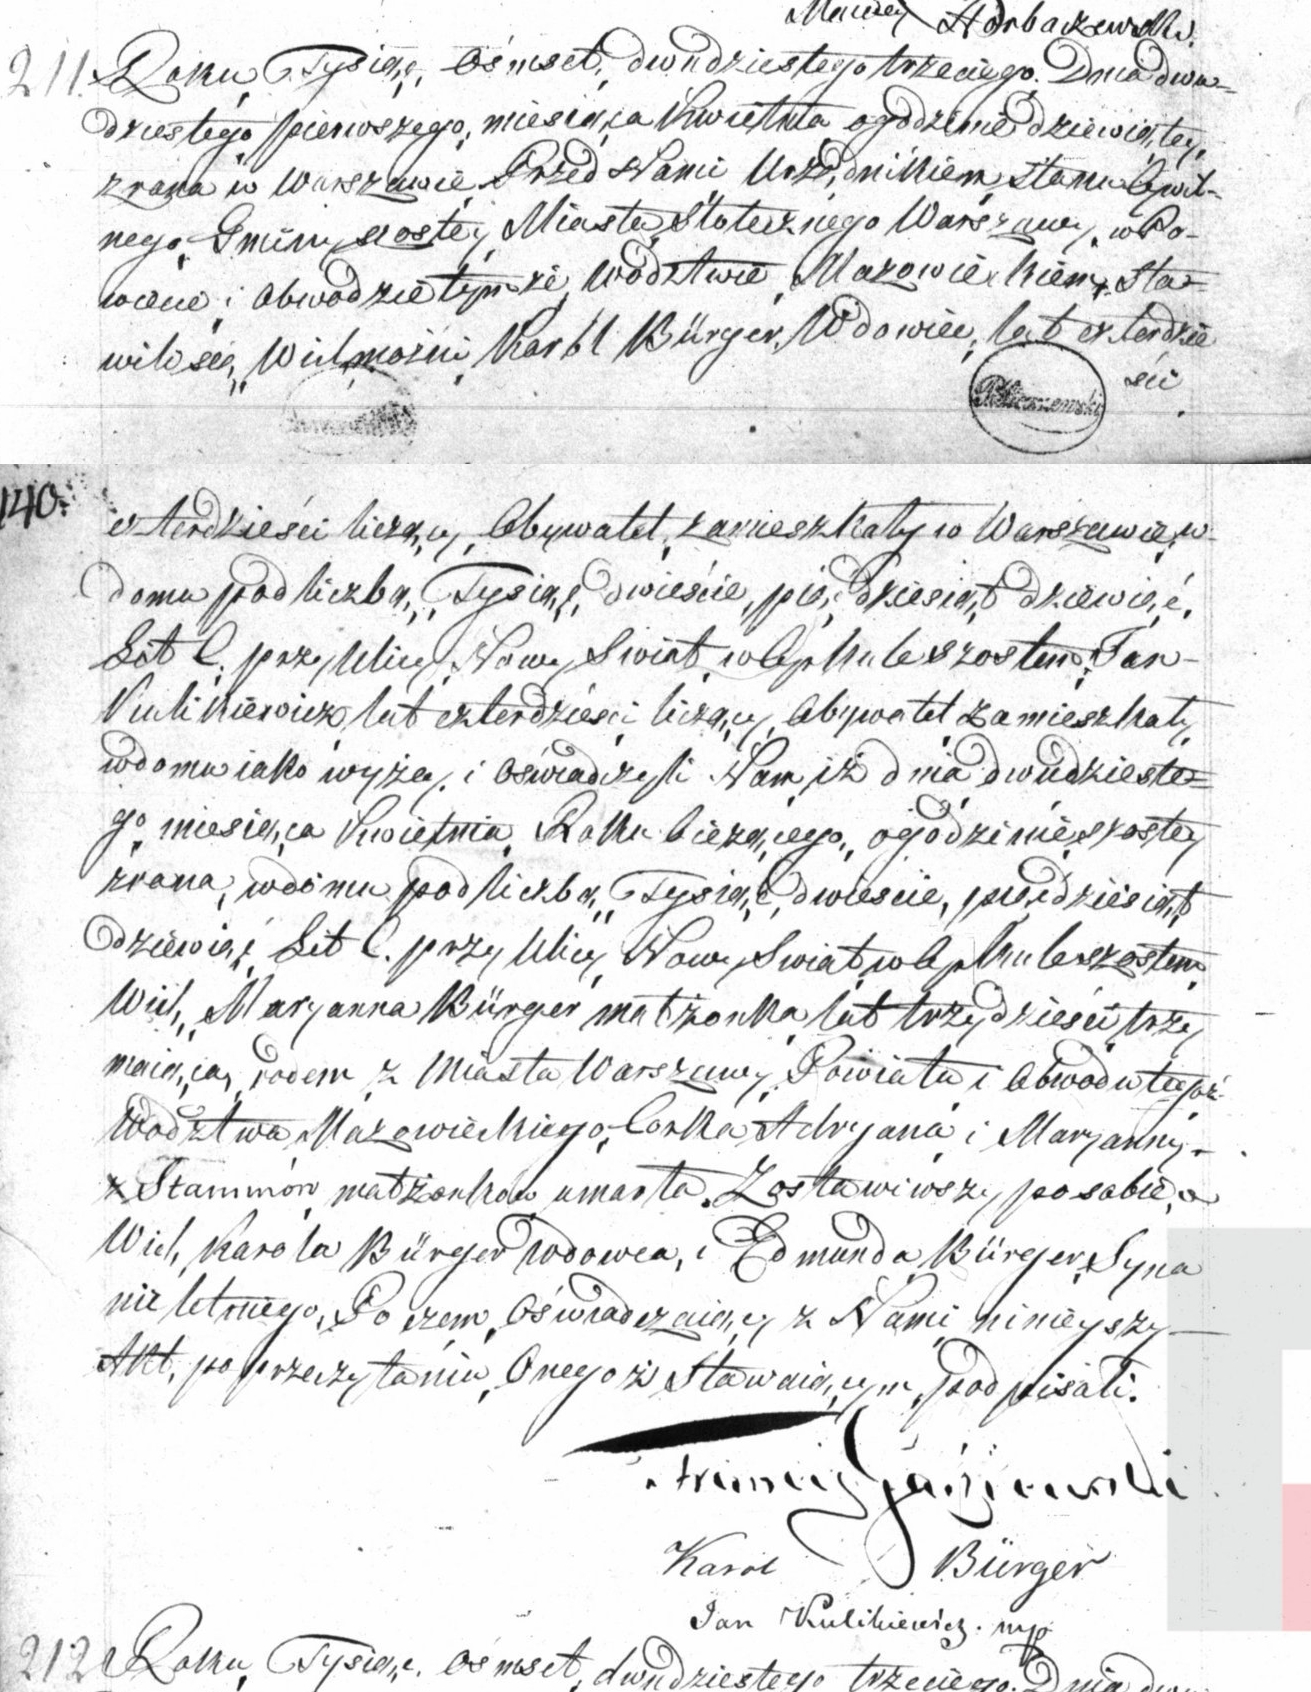 Maciey Horbaczewski.
211. Roku Tysiąc Ośmset, dwudziestego trzeciego. Dnia dwu-
dziestego pierwszego, miesiąca Kwietnia ogodzinie dziewiątey,
zrana w Warszawie, Przed Nami Urzędnikiem Stanu Cywil-
nego Gminy szostey, Miasta Stołecznego Warszawy, w Po-
wiecie i Obwodzie tymże, Wodztwie, Mazowieckiem, Sta-
wili się, Wielmożni Karol Bürger, Wdowiec, lat czterdzie
ści
140.
czterdzieści liczący, Obywatel, zamieszkały w Warszawie, w
domu pod liczbą, Tysiąc, dwieście, pięćdziesiąt dziewięć,
Lit C. przy Ulicy, Nowy Swiat, w Cyrkule szostem, Jan
Kulikiewicz, lat czterdzieści liczący, Obywatel zamieszkały
wdomu iako wyżey, i oświadczyli Nam, iż dnia dwudzieste-
go miesiąca Kwietnia, Roku bieżącego, ogodzinie szostey
zrana, wdomu pod liczbą, Tysiąc, dwieście, pięćdziesiąt
dziewięć Lit C. przy Ulicy, Nowy Swiat, w Cyrkule szostem
Wiel, Maryanna Bürger małżonka, lat trzydzieści trzy
maiąca, rodem z Miasta Warszawy, Powiatu i Obwodu tegoż
Wodztwa, Mazowieckiego, Corka Adryana i Maryanny,
z Stammów małżonków umarła. Zostawiwszy po sobie, o
Wiel, Karola Bürger Wdowca, i Edmunda Bürger, Syna
nieletniego, Po czem, Oświadczaiący z Nami ninieyszy
Akt, po przeczytaniu, Onegoż Stawaiącym, podpisali.
Karol Bürger
Jan Kulikiewicz. mp
212. Roku, Tysiąc, Ośmset, dwudziestego trzeciego. Dnia dwu-